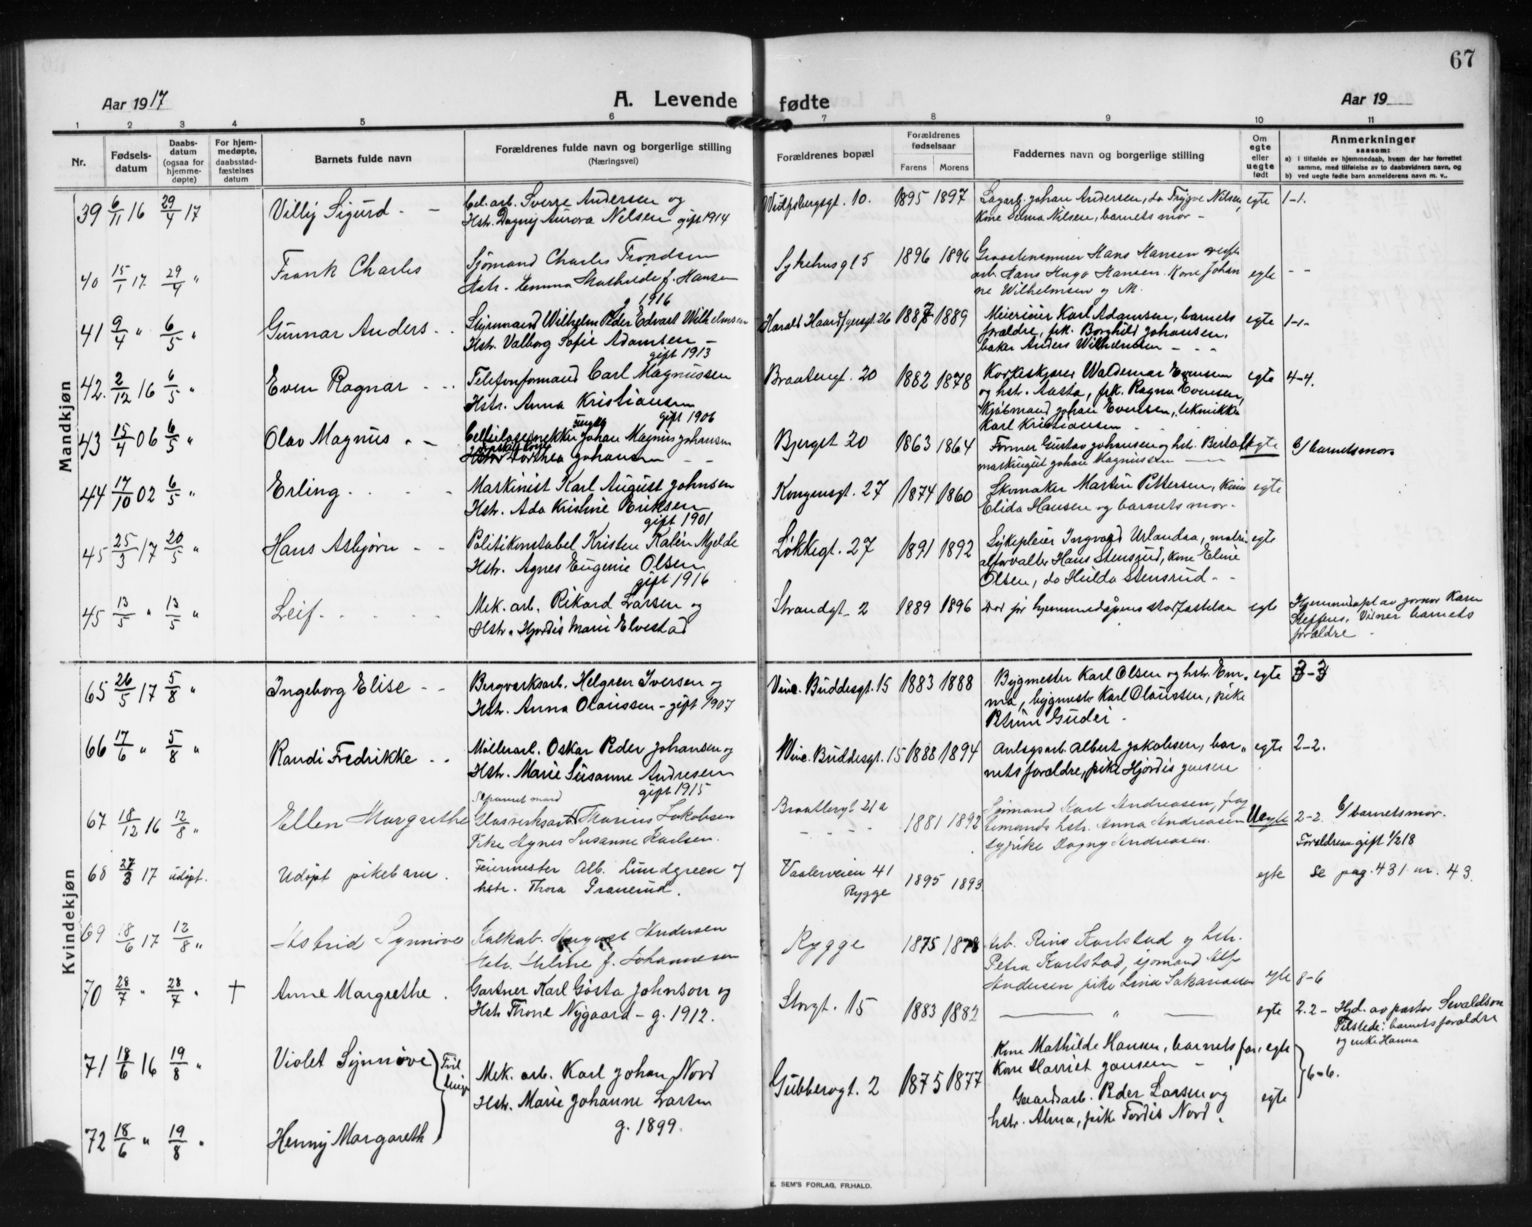 67
Aar 1917
A. Levende fødte
Aar 19
1 2 3 4 5 6 7 8 9 10 11
Nr.
Fødsels-
datum
Daabs-
datum
(ogsaa for
hjemme-
døpte)
For hjem-
medøpte,
daabsstad-
fæstelses
datum
Barnets fulde navn
Forældrenes fulde navn og borgerlige stilling
(Næringsvei)
Forældrenes bopæl
Forældrenes
fødselsaar
Farens Morens
Faddernes navn og borgerlige stilling
Om
egte
eller
uegte
født
Anmerkninger
saasom:
a) i tilfælde av hjemmedaab, hvem der har forrettet
samme, med tilføielse av to daabsvidners navn, og
b) ved uegte fødte barn anmelderens navn m. v..
Mandkjøn
39 6/11 16 29/4 17 Villy Sigurd - - Cel. arb. Sverre Andersen og
Hstr. Dagny Aurora Nelsen gift 1914
10. 1895 1897 Lagarb. Johan Andersen, do Trygve Nelsen,
kone Nilsen, barnets mor - egte 1-1.
40 15/1 17 29/4 " Frank Charles Sjømand Charles Trondsen
Hstr. Emma Mathilde f. Hansen
g 1916
Sykehusgt 5 1896 1896 Hans Hansen
arb. Hans Hugo Hansen. Kone Johan
ne Wilhelmsen og M. egte - -
41 9/4 " 6/5 " Gunnar Anders - - Styrmand Wilhelm Peder Edvart Wilhelmsen
Hstr. Valborg Sofie Adamsen -
gift 1913
Harald Haardf.gersgt 26 1887 1889 Meierieier Karl Adamsen, barnets
forældre, frk. Borghild Johansen,
baker Anders Wilhelmsen - - - egte 1-1-
42. 2/12 16 6/5 " Even Ragnar - - - Telefonformand Carl Magnussen
Hstr. Anna Kristiansen
gift 1906
Braatengt. 20 1882 1878 Korkskjærer Waldemar Evensen
og hstr. Aasta, frk. Ragna Evensen,
Skjøbmand Johan Evensen, tekniker
Karl Kristiansen egte 4-4.
43 15/4 06 6/5 " Olav Magnus - - Johan Magnus Johansen
Dorthea Johansen - -
Bjergst 20 1863 1864 Former Gustav Johansen og hst. Berta,
maskingut Johan Magnussen b/ barnets mor
44 17/10 02 6/5 " Erling. . . . . Maskinist Karl August Johnsen
Hstr. Ada Kristine Eriksen
gift 1901
Kongensgt. 27 1874 1860 Skomaker Martin Pettersen, kone
Elida Hansen og barnets mor. egte
45 25/3 17 20/5 " Hans Asbjørn - - Politikonstabel Kristen Kalén Mjelde
Hstr. Agnes Eugenie Olsen
gift 1916
Løkkegt. 27 1891 1892 Sykepleier Ingvard Urlandaa, matri-
alforvalter Hans Stensrud, kone Eline
Olsen, do Hulda Stensrud - - egte
45 13/5 " 13/5 " Leif. . . . Mek. arb. Rikard Larsen og
Hstr. Hjørdis Marie Elvestad
Strandgt. 2 1889 1896 død før hjemmedåpens stadfæstelse egte Hjemmedøpt av jormor Karen
Steffens, Vidner barnets
forældre -
Kvindekjøn
65 26/5 17 5/8 " Ingeborg Elise - - Bergværksarb. Helgren Iversen og
Hstr. Anna Olaussen - gift 1907
Vinc. Buddesgt. 15 1883 1888 Bygmester Karl Olsen og hstr. Em-
ma, bygmester Karl Olaussen, pike
Petrine Guder - egte 3-3
66 17/6 " 5/8 " Randi Fredrikke - - Møllerarb. Oskar Peder Johansen og
Hstr. Marie Susanne Andresen
gift 1915
Vinc. Buddesgt. 15 1888 1894 Anlegsarb Albert Jakobsen, bar-
nets forældre, pike Hjørdis Jensen egte 2-2.
67 18/12 16 12/8 " Ellen Margrethe Separeret mand
Glasverksarb Thorius Jakobsen
Pike Agnes Susanne Karlsen.
Braatengt 21a 1881 1892 Sjømand Karl Andreasen, fog
hstr. Anna Andreasen
og pike Dagny Andreasen. Uegte 2-2. b/ barnets mor.
Forældrene gift 1/2 18
68 27/3 17 udøpt. Udøpt pikebarn. Feiermester Alb. Lundgreen og
hstr. Thora Granerud.
Vaalerveien 41
Rygge 1895 1893 egte Se pag. 431 nr. 43.
69 8/6 17 12/8 " Astrid Synnøve Kalkab. August Andersen
Hstr. Helene f. Johannesen
Rygge 1875 1878 Arb. Rino Karlstad og hstr.
Petra Karlstad, sjømand Alf
Andersen pike Lina Sakariassen egte 8-6
70 28/7 " 28/7 " † Anne Margrethe. Gartner Karl Gøsta Johnson og
Hstr Thone Nygaard - g. 1912.
Storgt. 15 1883 1882 - " - egte 2-2- Hjd. av pastor Sevaldson
Tilstede: barnets forældre
og enke Hanna
71 18/6 16 19/8 " Violet Synnøve Tvil
linge Mek. arb. Karl Johan Nord
Hstr. Marie Johanne Larsen
g. 1899.
Gubberogt. 2 1875 1877 Kone Mathilde Hansen, barnets far,
Kone Harriet Jansen - egte 6-6.
72 18/6 " 19/8 " Henny Margareth Peder Larsen og
hstr. Alma, pike Tordis Nord. egte
E. SEM'S FORLAG, FR.HALD.